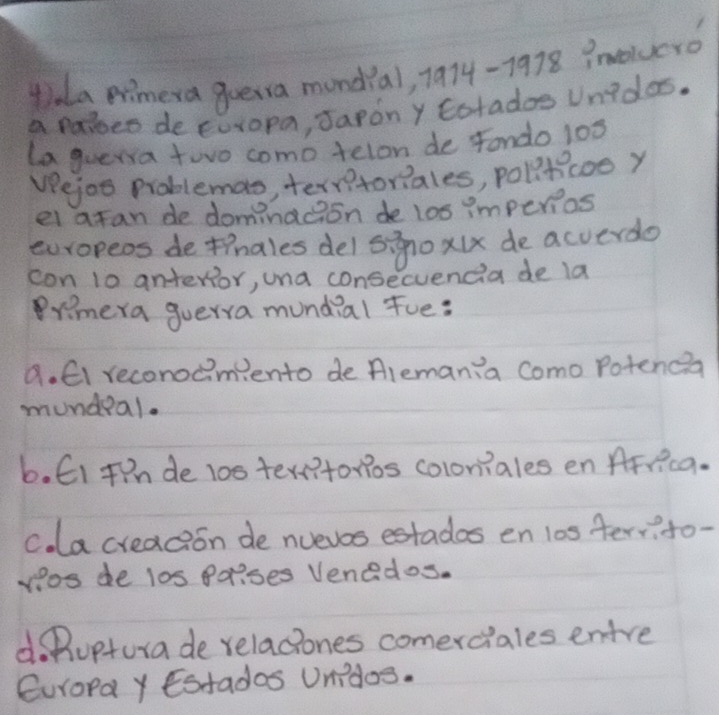 4). La primera guerra mundial, 1914-1918 involucró
a países de Europa, Japón y Estados Unidos.
La guerra tuvo como telon de fondo los
viejos problemas, territoriales, políticos y
el afan de dominación de los imperios
europeos de finales del siglo XIX de acuerdo
con lo anterior, una consecuencia de la
Primera guerra mundial fue:
a. El reconocimiento de Alemania como Potencia
mundial.
b. El fin de los territorios coloniales en Africa.
c. La creación de nuevos estados en los territo-
rios de los países vencidos.
d. Ruptura de relaciones comerciales entre
Europa y Estados Unidos.